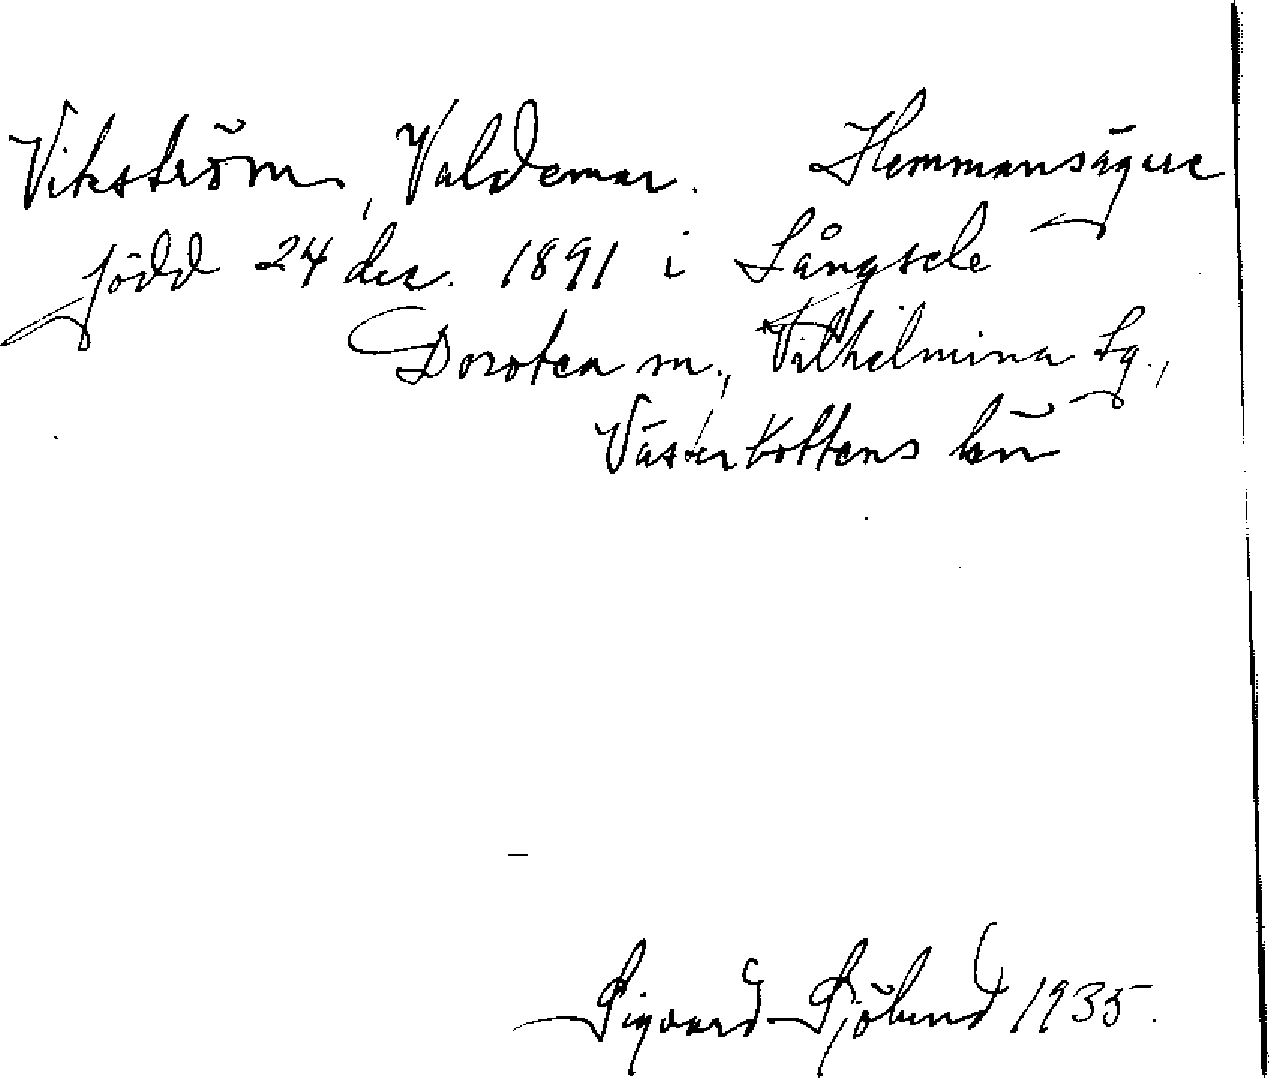 Vikström, Valdemar. Hemmansägare
född 24 dec. 1891 i Långsele
Dorotea sn., Vilhelmina Lg.,
Västerbottens län
Sigvard Sjölund 1935.